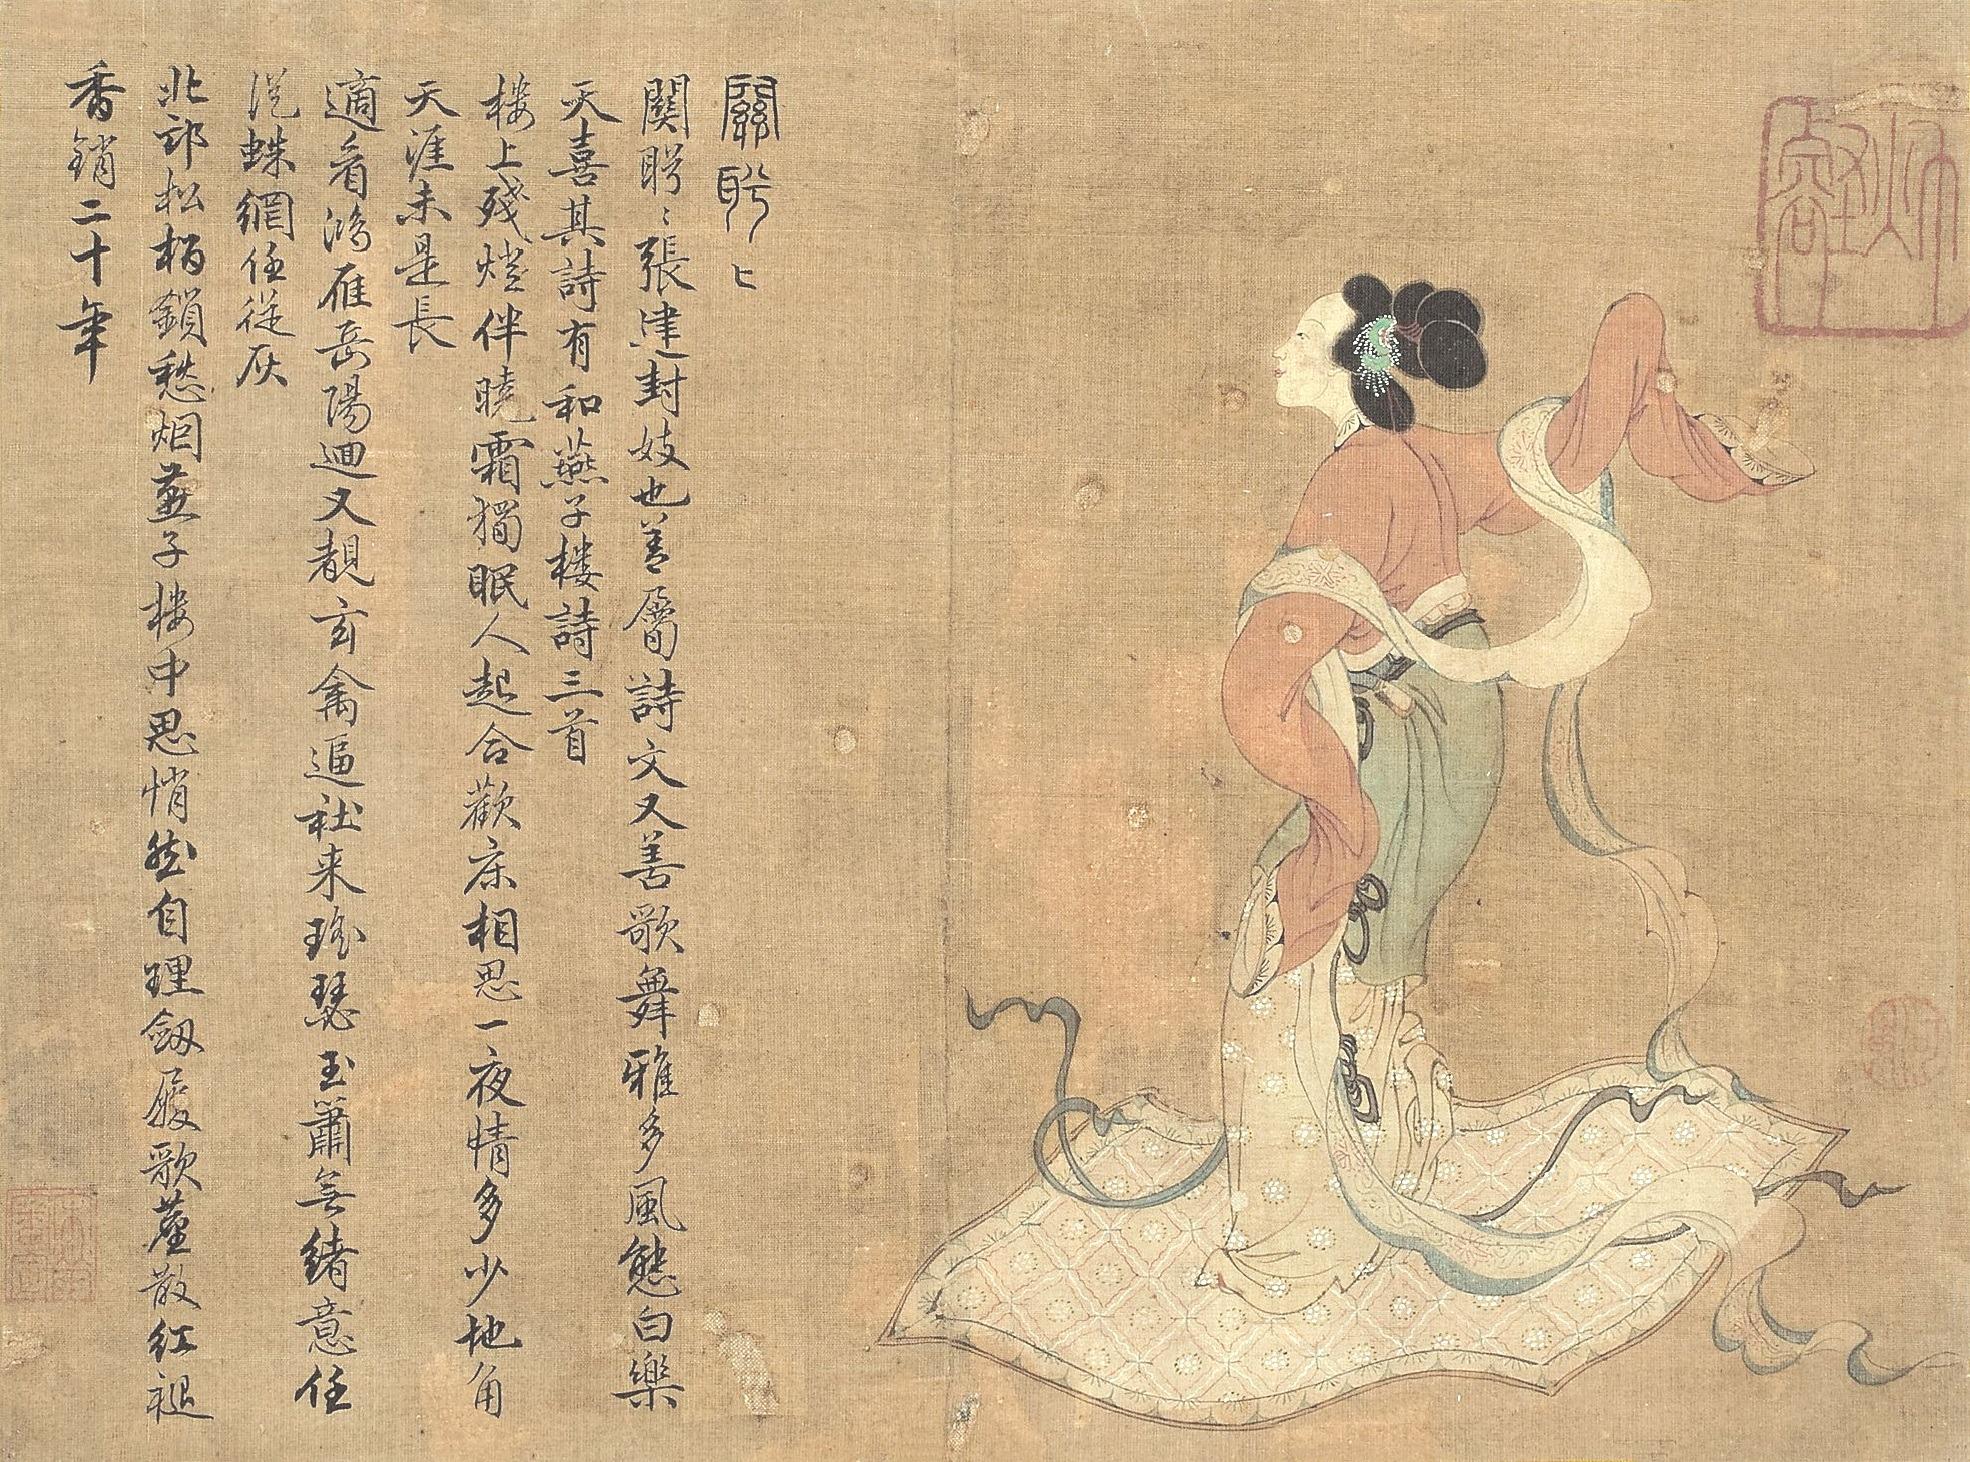 關盼〻
関盼〻張建封妓也善屬詩文又善歌舞雅多風態白樂
天喜其詩有和燕子楼詩三首
楼上残燈伴曉霜獨眠人起合歡床相思一夜情多少地角
天涯未是長
適看鴻雁岳陽迴又覩玄禽逼社来瑤瑟玉簫無緒意任
從蛛網任從灰
北邙松柏鎖愁烟燕子楼中思悄然自理劔履歌塵散红褪
香銷二十年